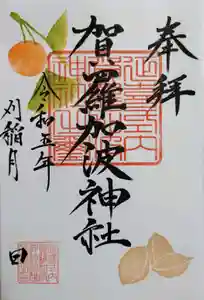 奉拝
賀羅加波神社
令和五年
刈稲月
日